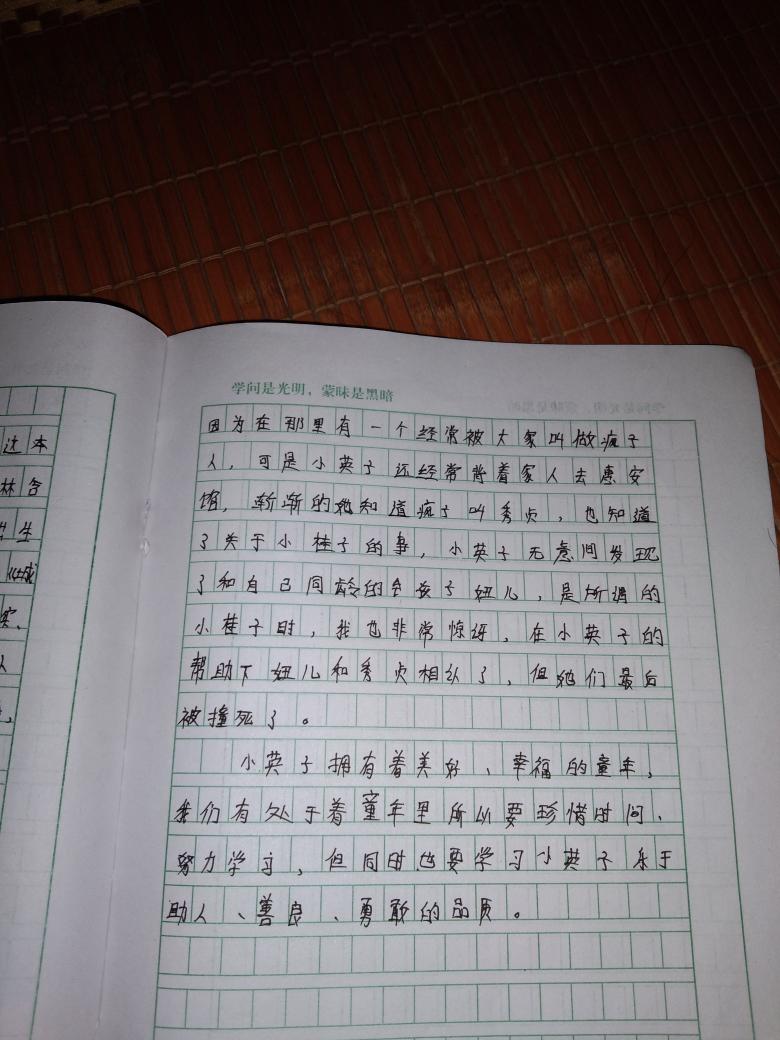 学问是光明，蒙昧是黑暗
达本
林含
生
实、
因为在那里有一个经常被大家叫做疯子
人，可是小英子还经常背着家人去惠安
馆，渐渐的她知道疯子叫秀贞，也知道
了关于小桂子的事，小英子无意间发现
了和自己同龄的女孩子妞儿，是所谓的
小桂子时，我也非常惊讶，在小英子的
帮助下妞儿和秀贞相认了，但她们最后
被撞死了。
小英子拥有着美好、幸福的童年，
我们有处于着童年里所以要珍惜时间、
努力学习，但同时也要学习小英子乐于
助人、善良、勇敢的品质。